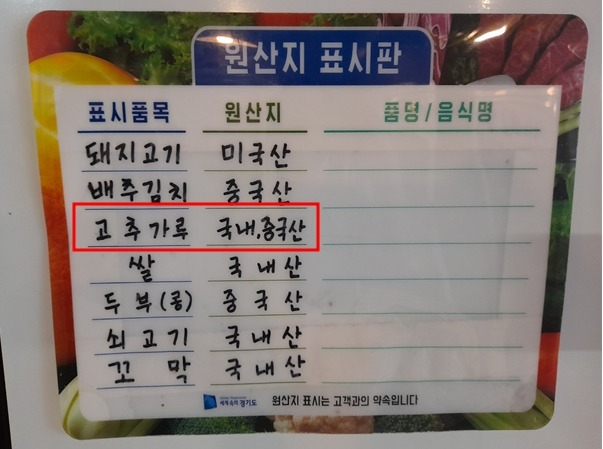 원산지 표시판
표시품목 원산지 품명/음식명
돼지고기 미국산
배추김치 중국산
고추가루 국내.중국산
쌀 국내산
두부(콩) 중국산
쇠고기 국내산
꼬막 국내산
세계속의 경기도 원산지 표시는 고객과의 약속입니다